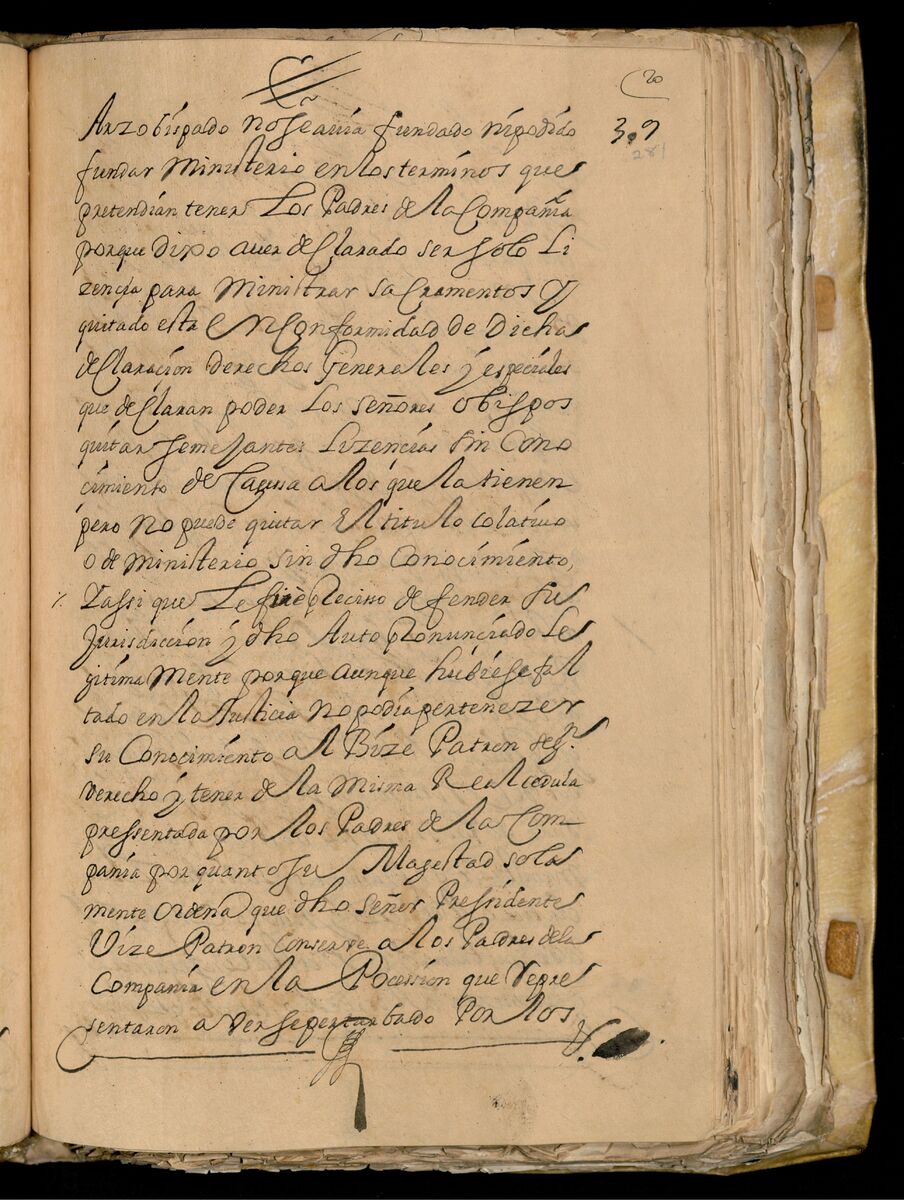 20
309
281
Arzobispado no Se avia fundado ni podido
fundar Ministerio en los terminos que
pretendian tener Los Padres de la Compañia
porque dixo aver declarado ser solo Li
zencia para Ministrar sacramentos Y
quitado esta en Conformidad de Dicha
declaracion derechos Generales y especiales
que declaran poder Los Señores Obispos
quitar semejantes Lizencias sin Cono
cimiento de Caussa a los que la tienen
pero No puede quitar El titulo Colativo
o de Ministerio sin dho Conocimiento,
Y assi que Le fue preciso defender su
Jurisdiccion y dho Auto pronunciado Le
gitima Mente porque aunque hubiese fal
tado en la Justicia No podia pertenezer
su Conocimiento al Bize Patron de
derecho y tener de la Misma Real cedula
pressentada por los Padres de la Com
pañia por quanto su Magestad sola
mente Ordena que dho Señor Pressidente
Vize Patron conserve a los Padres de la
Compañia en la Pocession que repre
sentaron aver se perturbado Por los